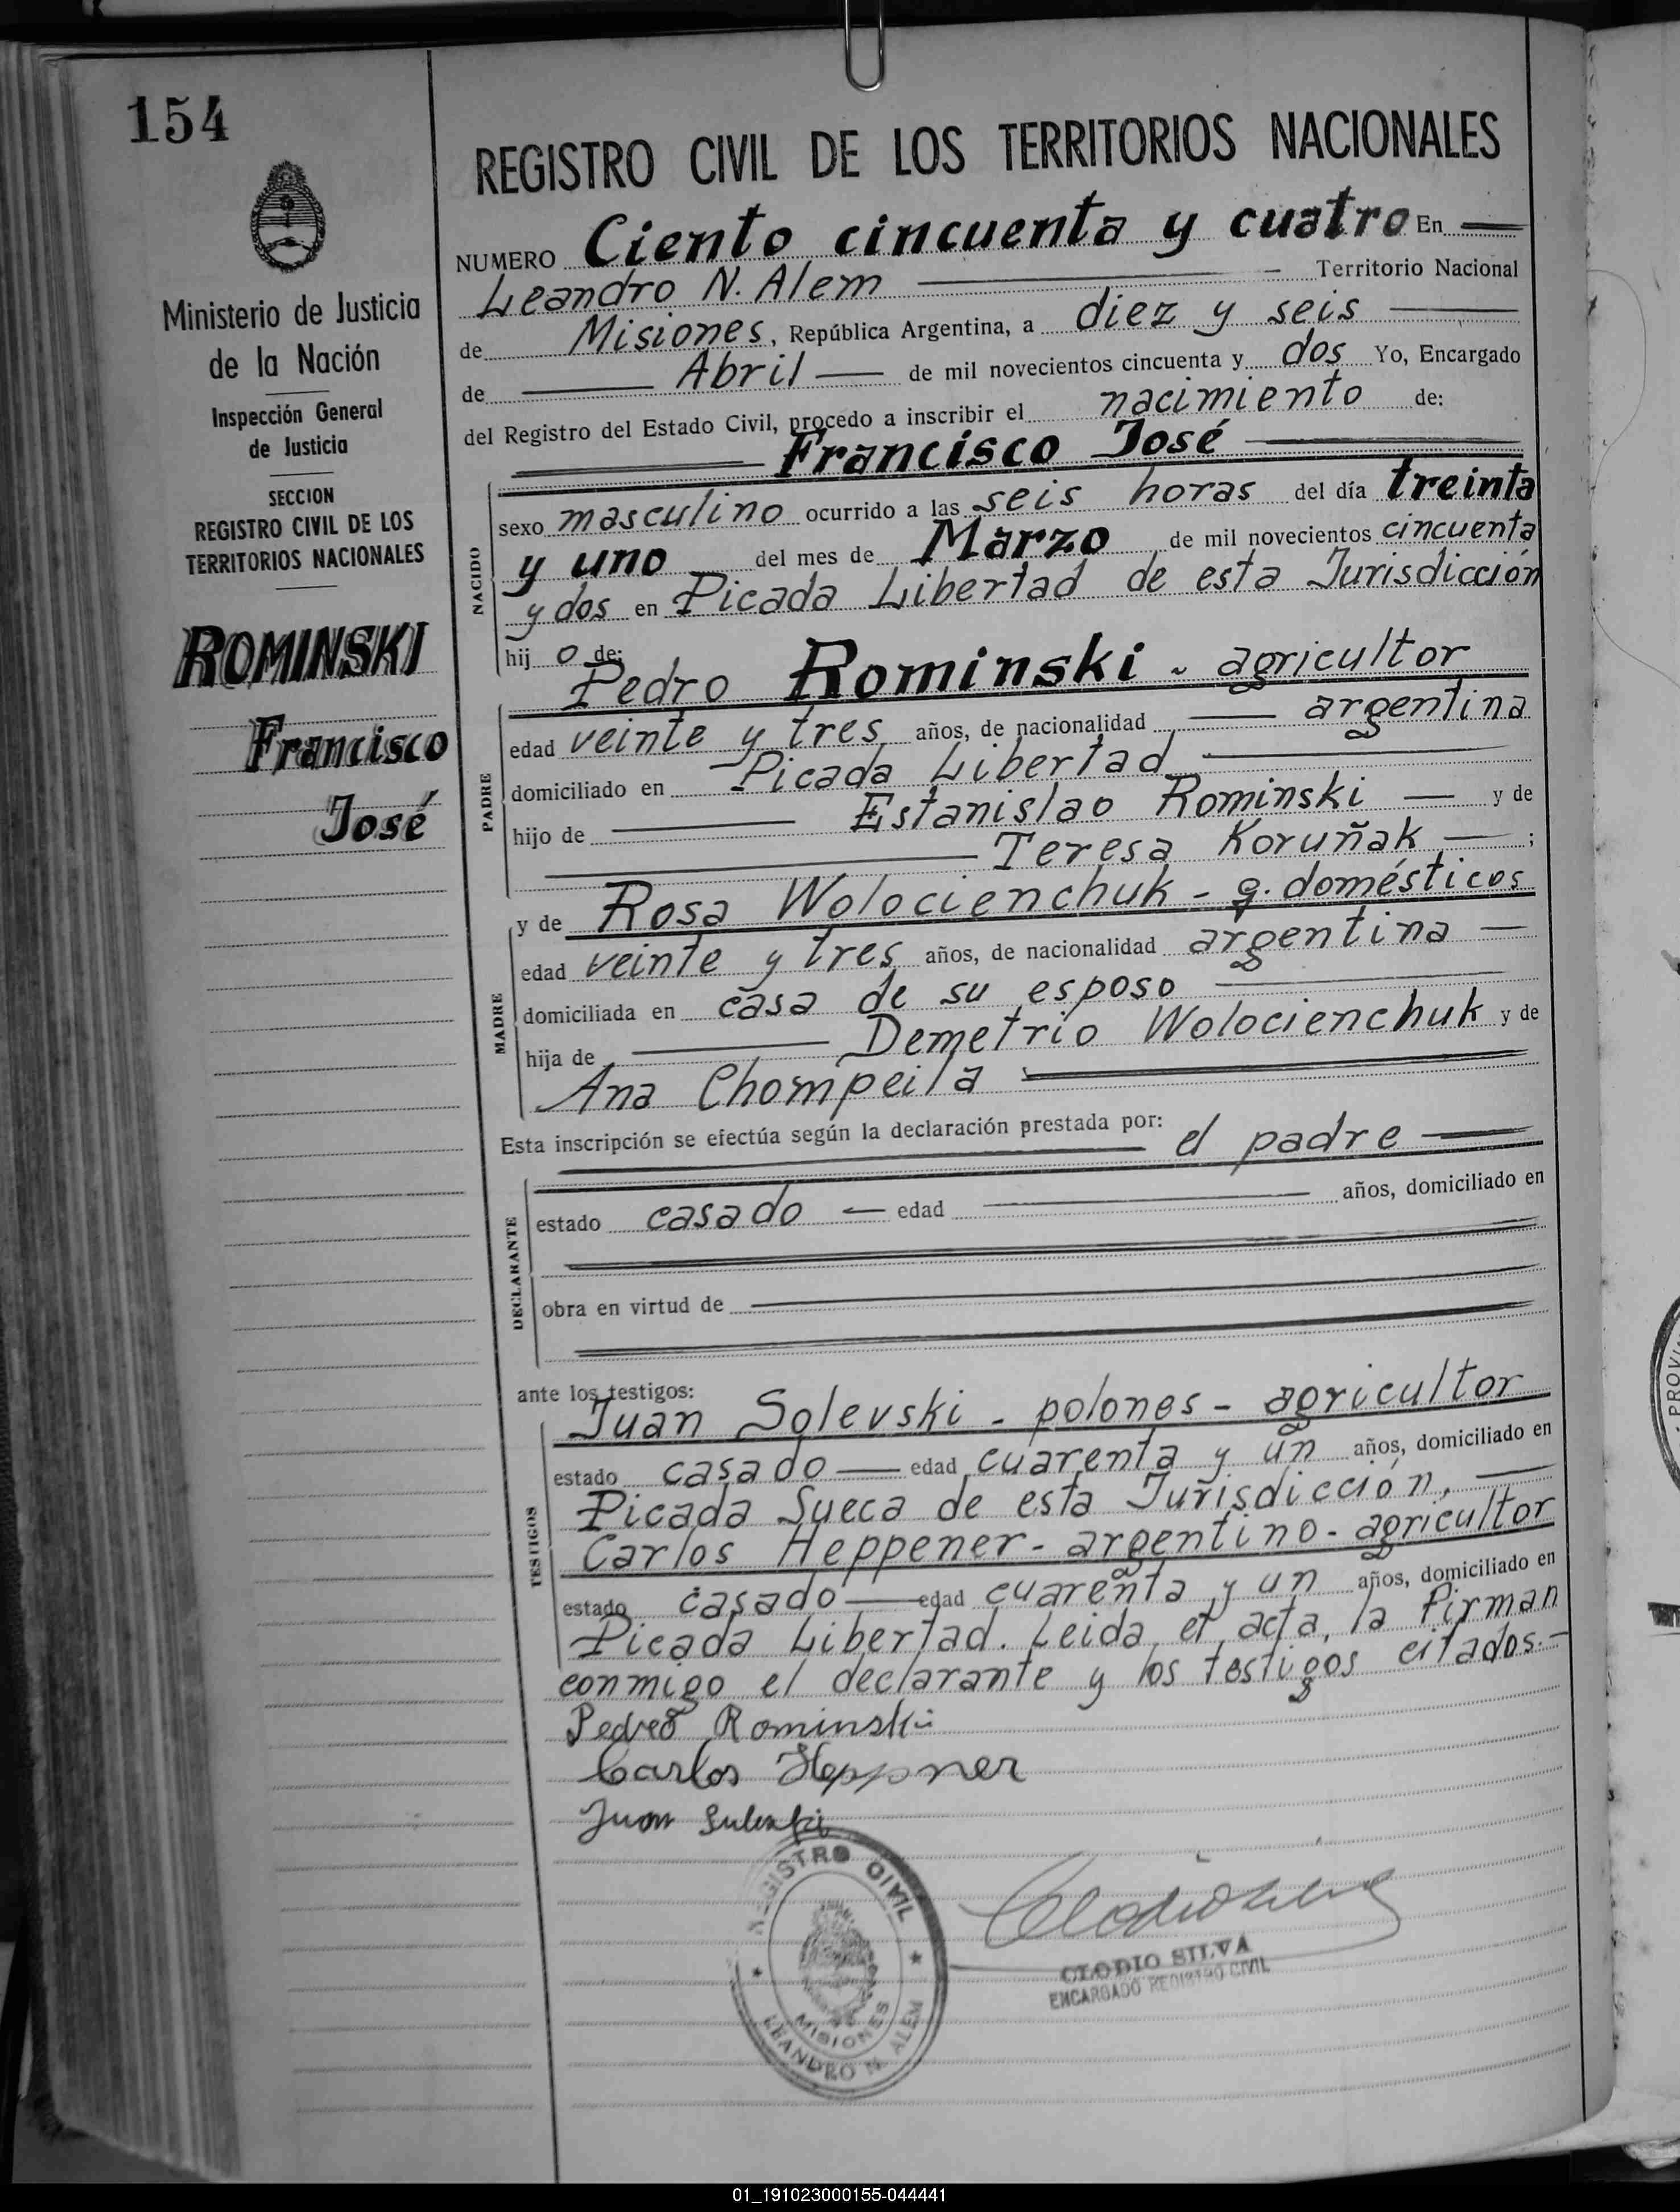 154
Ministerio de Justicia
de la Nación
Inspección General
de Justicia
SECCION
REGISTRO CIVIL DE LOS
TERRITORIOS NACIONALES
ROMINSKI
Francisco
José
REGISTRO CIVIL DE LOS TERRITORIOS NACIONALES
NUMERO Ciento cincuenta y cuatro En
Leandro N. Alem Territorio Nacional
de Misiones, República Argentina, a diez y seis
de Abril de mil novecientos cincuenta y dos Yo, Encargado
del Registro del Estado Civil, procedo a inscribir el nacimiento de:
Francisco José
NACIDO
sexo masculino ocurrido a las seis horas del día treinta
y uno del mes de Marzo de mil novecientos cincuenta
y dos en Picada Libertad de esta Jurisdicción
hij o de:
PADRE
Pedro Rominski - agricultor
edad veinte y tres años, de nacionalidad argentina
domiciliado en Picada Libertad
hijo de Estanislao Rominski y de
Teresa Koruñak ;
MADRE
y de Rosa Wolocienchuk - q. domésticos
edad veinte y tres años, de nacionalidad argentina
domiciliada en casa de su esposo
hija de Demetrio Wolocienchuk y de
Ana Chompeila
Esta inscripción se efectúa según la declaración prestada por:
el padre
DECLARANTE
estado casado edad años, domiciliado en
obra en virtud de
ante los testigos:
TESTIGOS
Juan Solevski - polones - agricultor
estado casado edad cuarenta y un años, domiciliado en
Picada Sueca de esta Jurisdicción,
Carlos Heppener - argentino - agricultor
estado casado edad cuarenta y un años, domiciliado en
Picada Libertad. Leida el acta, la firman
conmigo el declarante y los testigos citados.-
Pedro Rominski
Carlos Heppner
Juan
REGISTRO CIVIL
MISIONES
LEANDRO N. ALEM
CLODIO SILVA
ENCARGADO REGISTRO CIVIL
01_191023000155-044441